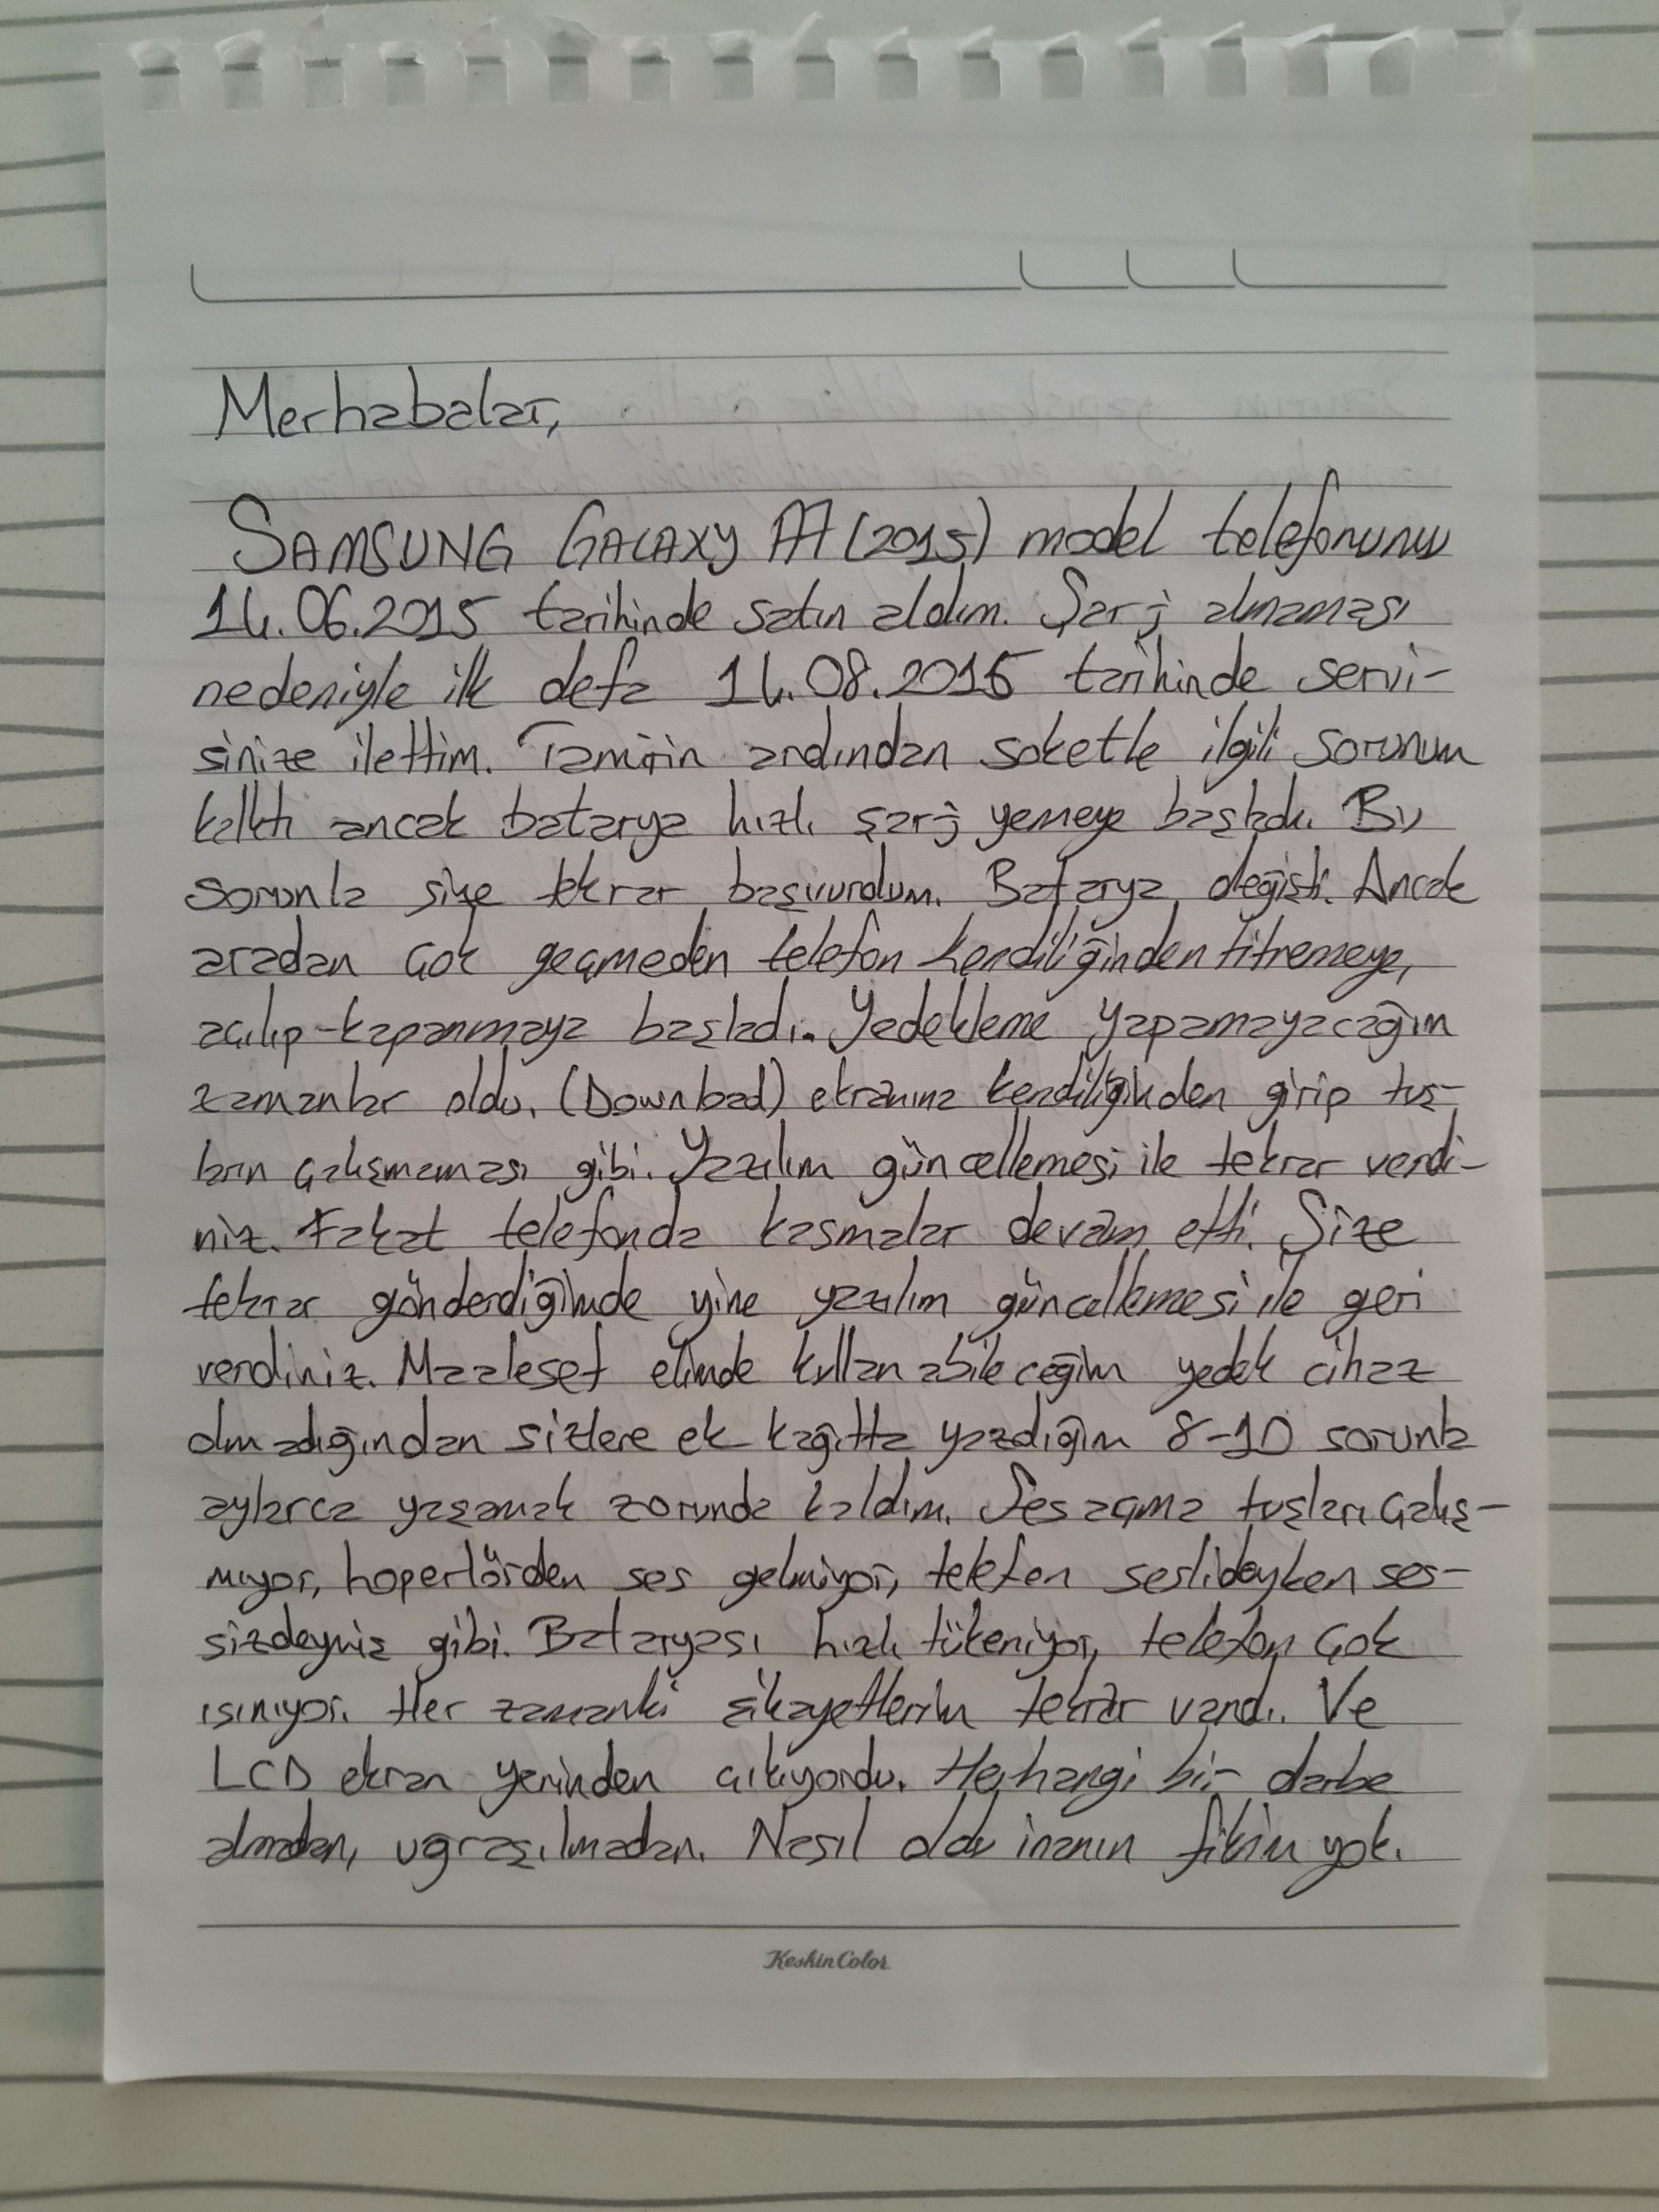 Merhabalar,
SAMSUNG GALAXY A7 (2015) model telefonunu
14.06.2015 tarihinde satın aldım. Şarj almaması
nedeniyle ilk defa 14.08.2015 tarihinde servi-
sinize ilettim. Tamirin ardından soketle ilgili sorunum
kalktı ancak batarya hızlı şarj yemeye başladı. Bu
sorunla size tekrar başvurdum. Batarya değişti. Ancak
aradan çok geçmeden telefon kendiliğinden titremeye,
açılıp-kapanmaya başladı. Yedekleme yapamayacağım
zamanlar oldu. (Download) ekranına kendiliğinden girip tuş-
ların çalışmaması gibi. Yazılım güncellemesi ile tekrar verdi-
niz. Fakat telefonda kasmalar devam etti. Size
tekrar gönderdiğimde yine yazılım güncellemesi ile geri
verdiniz. Maalesef elimde kullanabileceğim yedek cihaz
olmadığından sizlere ek kağıtta yazdığım 8-10 sorunla
aylarca yaşamak zorunda kaldım. Ses açma tuşları çalış-
mıyor, hoperlörden ses gelmiyor, telefon seslideyken ses-
sizdeymiş gibi. Bataryası hızlı tükeniyor, telefon çok
ısınıyor. Her zamanki şikayetlerim tekrar vardı. Ve
LCD ekran yerinden çıkıyordu. Herhangi bir darbe
almadan, uğraşılmadan. Nasıl oldu inanın fikrim yok.
KeskinColor